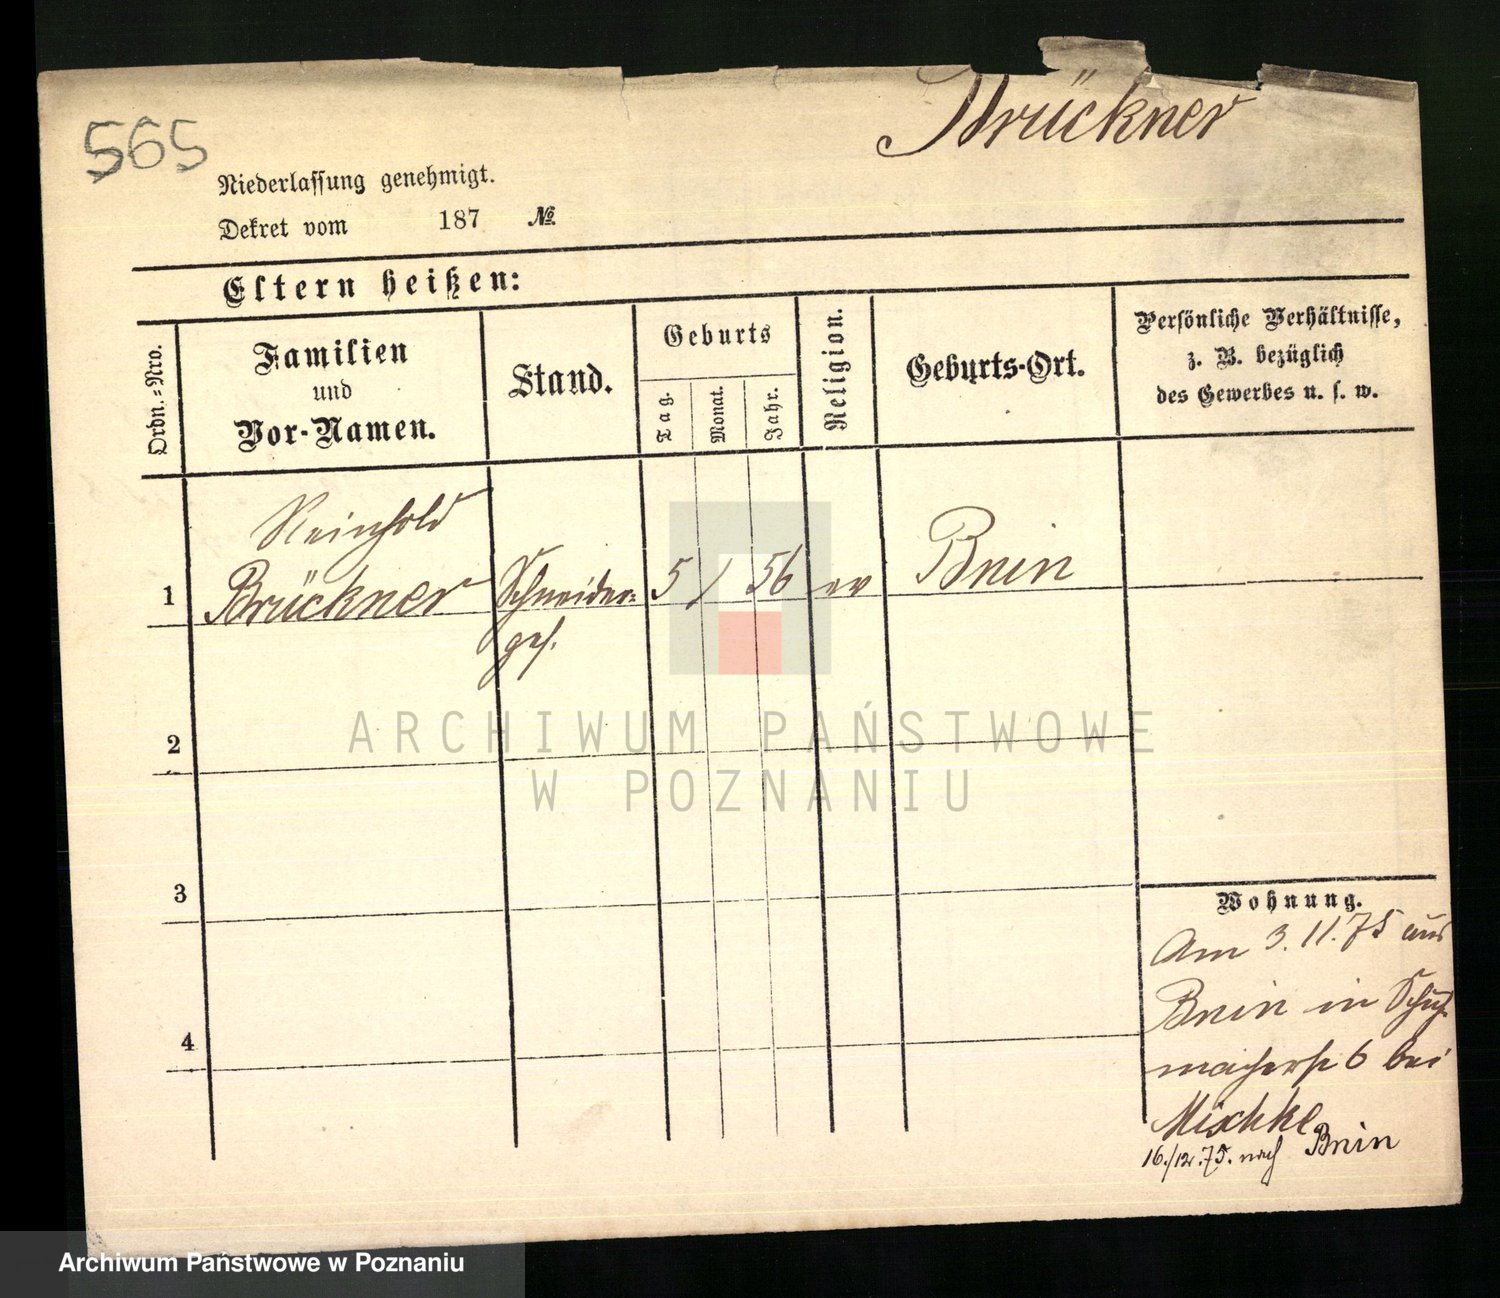 565
Brückner
Niederlassung genehmigt.
Dekret vom 187 №
Eltern heißen:
Ordn.-Nro.
Familien
und
Vor-Namen.
Stand.
Geburts
Tag.
Monat.
Jahr.
Religion.
Geburts-Ort.
Persönliche Verhältnisse,
z. B. bezüglich
des Gewerbes u. s. w.
Reinhold
1 Brückner Schneider- 5 / 56 ev Bnin
ges.
2
3
4
Wohnung.
Am 3. 11. 75 aus
Bnin in Schuh-
macherstr 6 bei
Mischke
16./12. 75. nach Bnin
ARCHIWUM PAŃSTWOWE
W POZNANIU
Archiwum Państwowe w Poznaniu